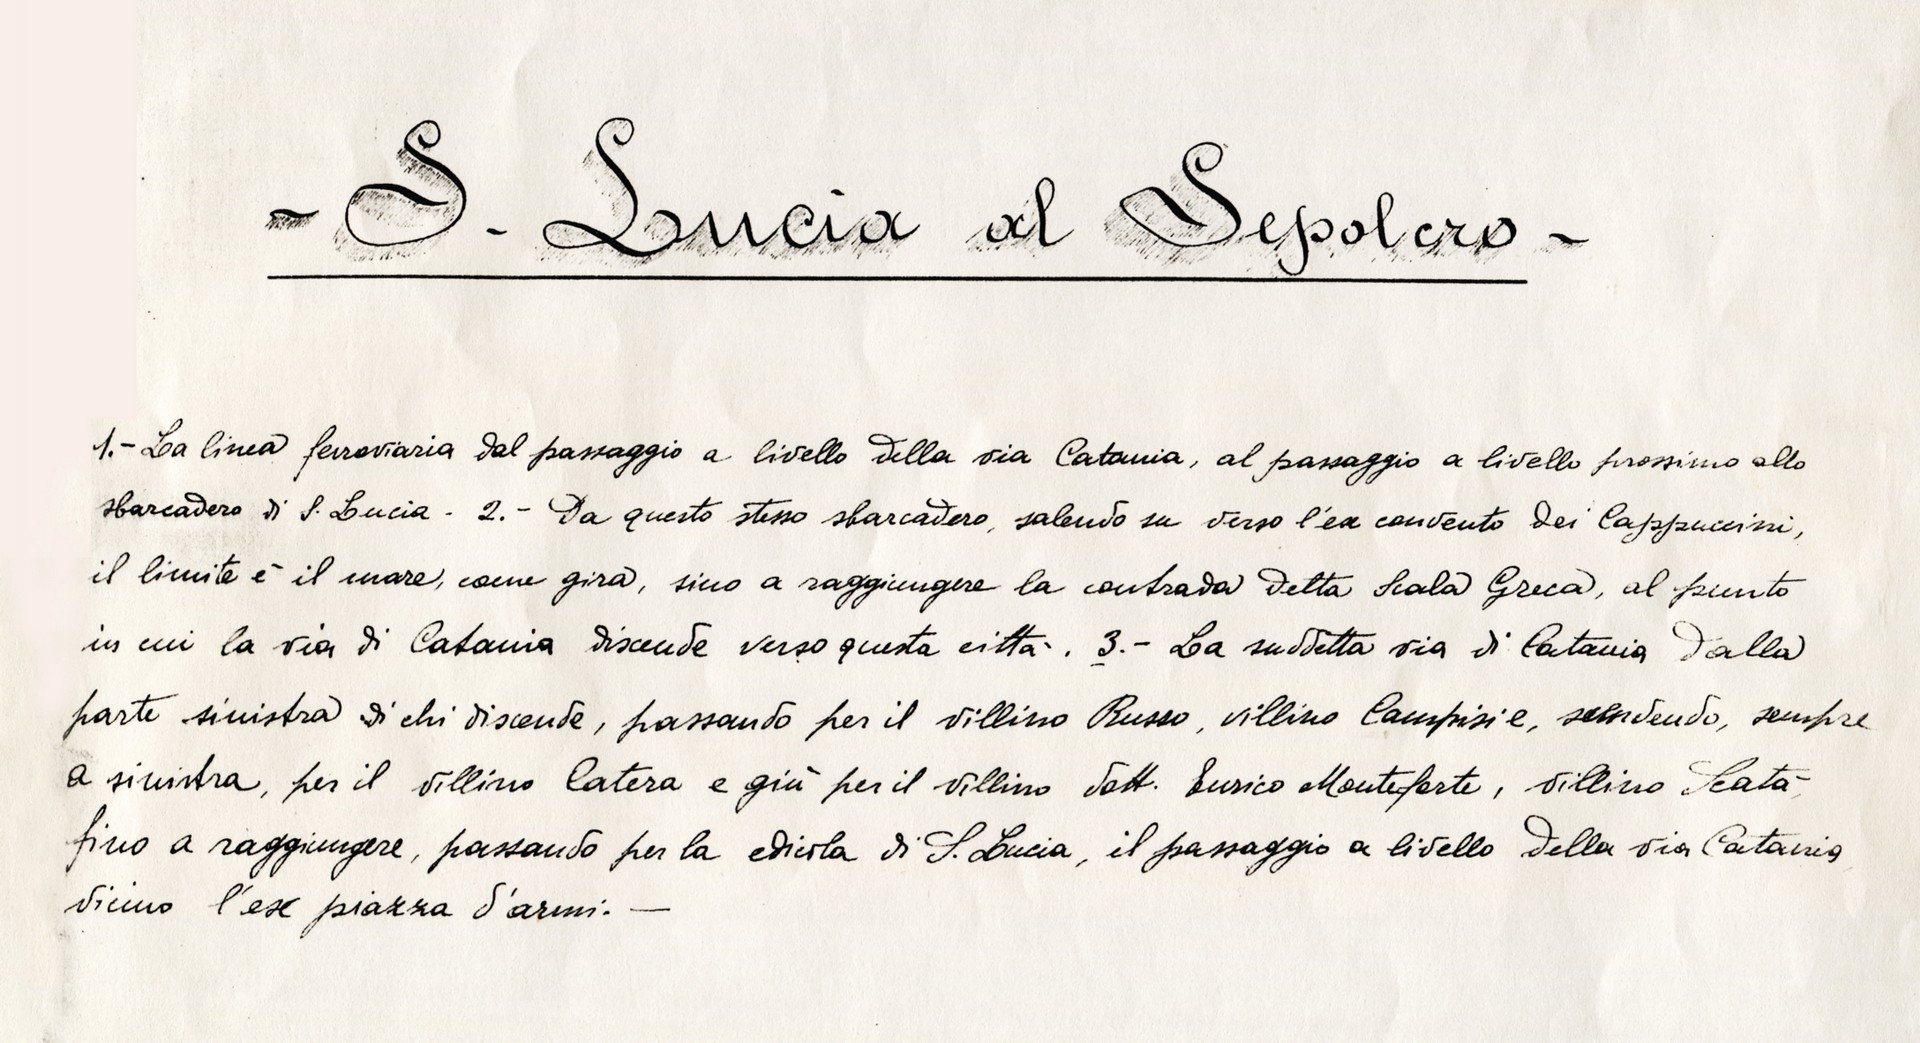 - S. Lucia al Sepolcro -
1.- La linea ferroviaria dal passaggio a livello della via Catania, al passaggio a livello prossimo allo
sbarcadero di S. Lucia - 2.- Da questo stesso sbarcadero, salendo su verso l'ex convento dei Cappuccini,
il limite è il mare, come gira, sino a raggiungere la contrada detta Scala Greca, al punto
in cui la via di Catania discende verso questa città. 3.- La suddetta via di Catania dalla
parte sinistra di chi discende, passando per il villino Russo, villino Campisi e, scendendo, sempre
a sinistra, per il villino Catera e giù per il villino dott. Enrico Monteforte, villino Scatà
fino a raggiungere, passando per la edicola di S. Lucia, il passaggio a livello della via Catania
vicino l'ex piazza d'armi. —